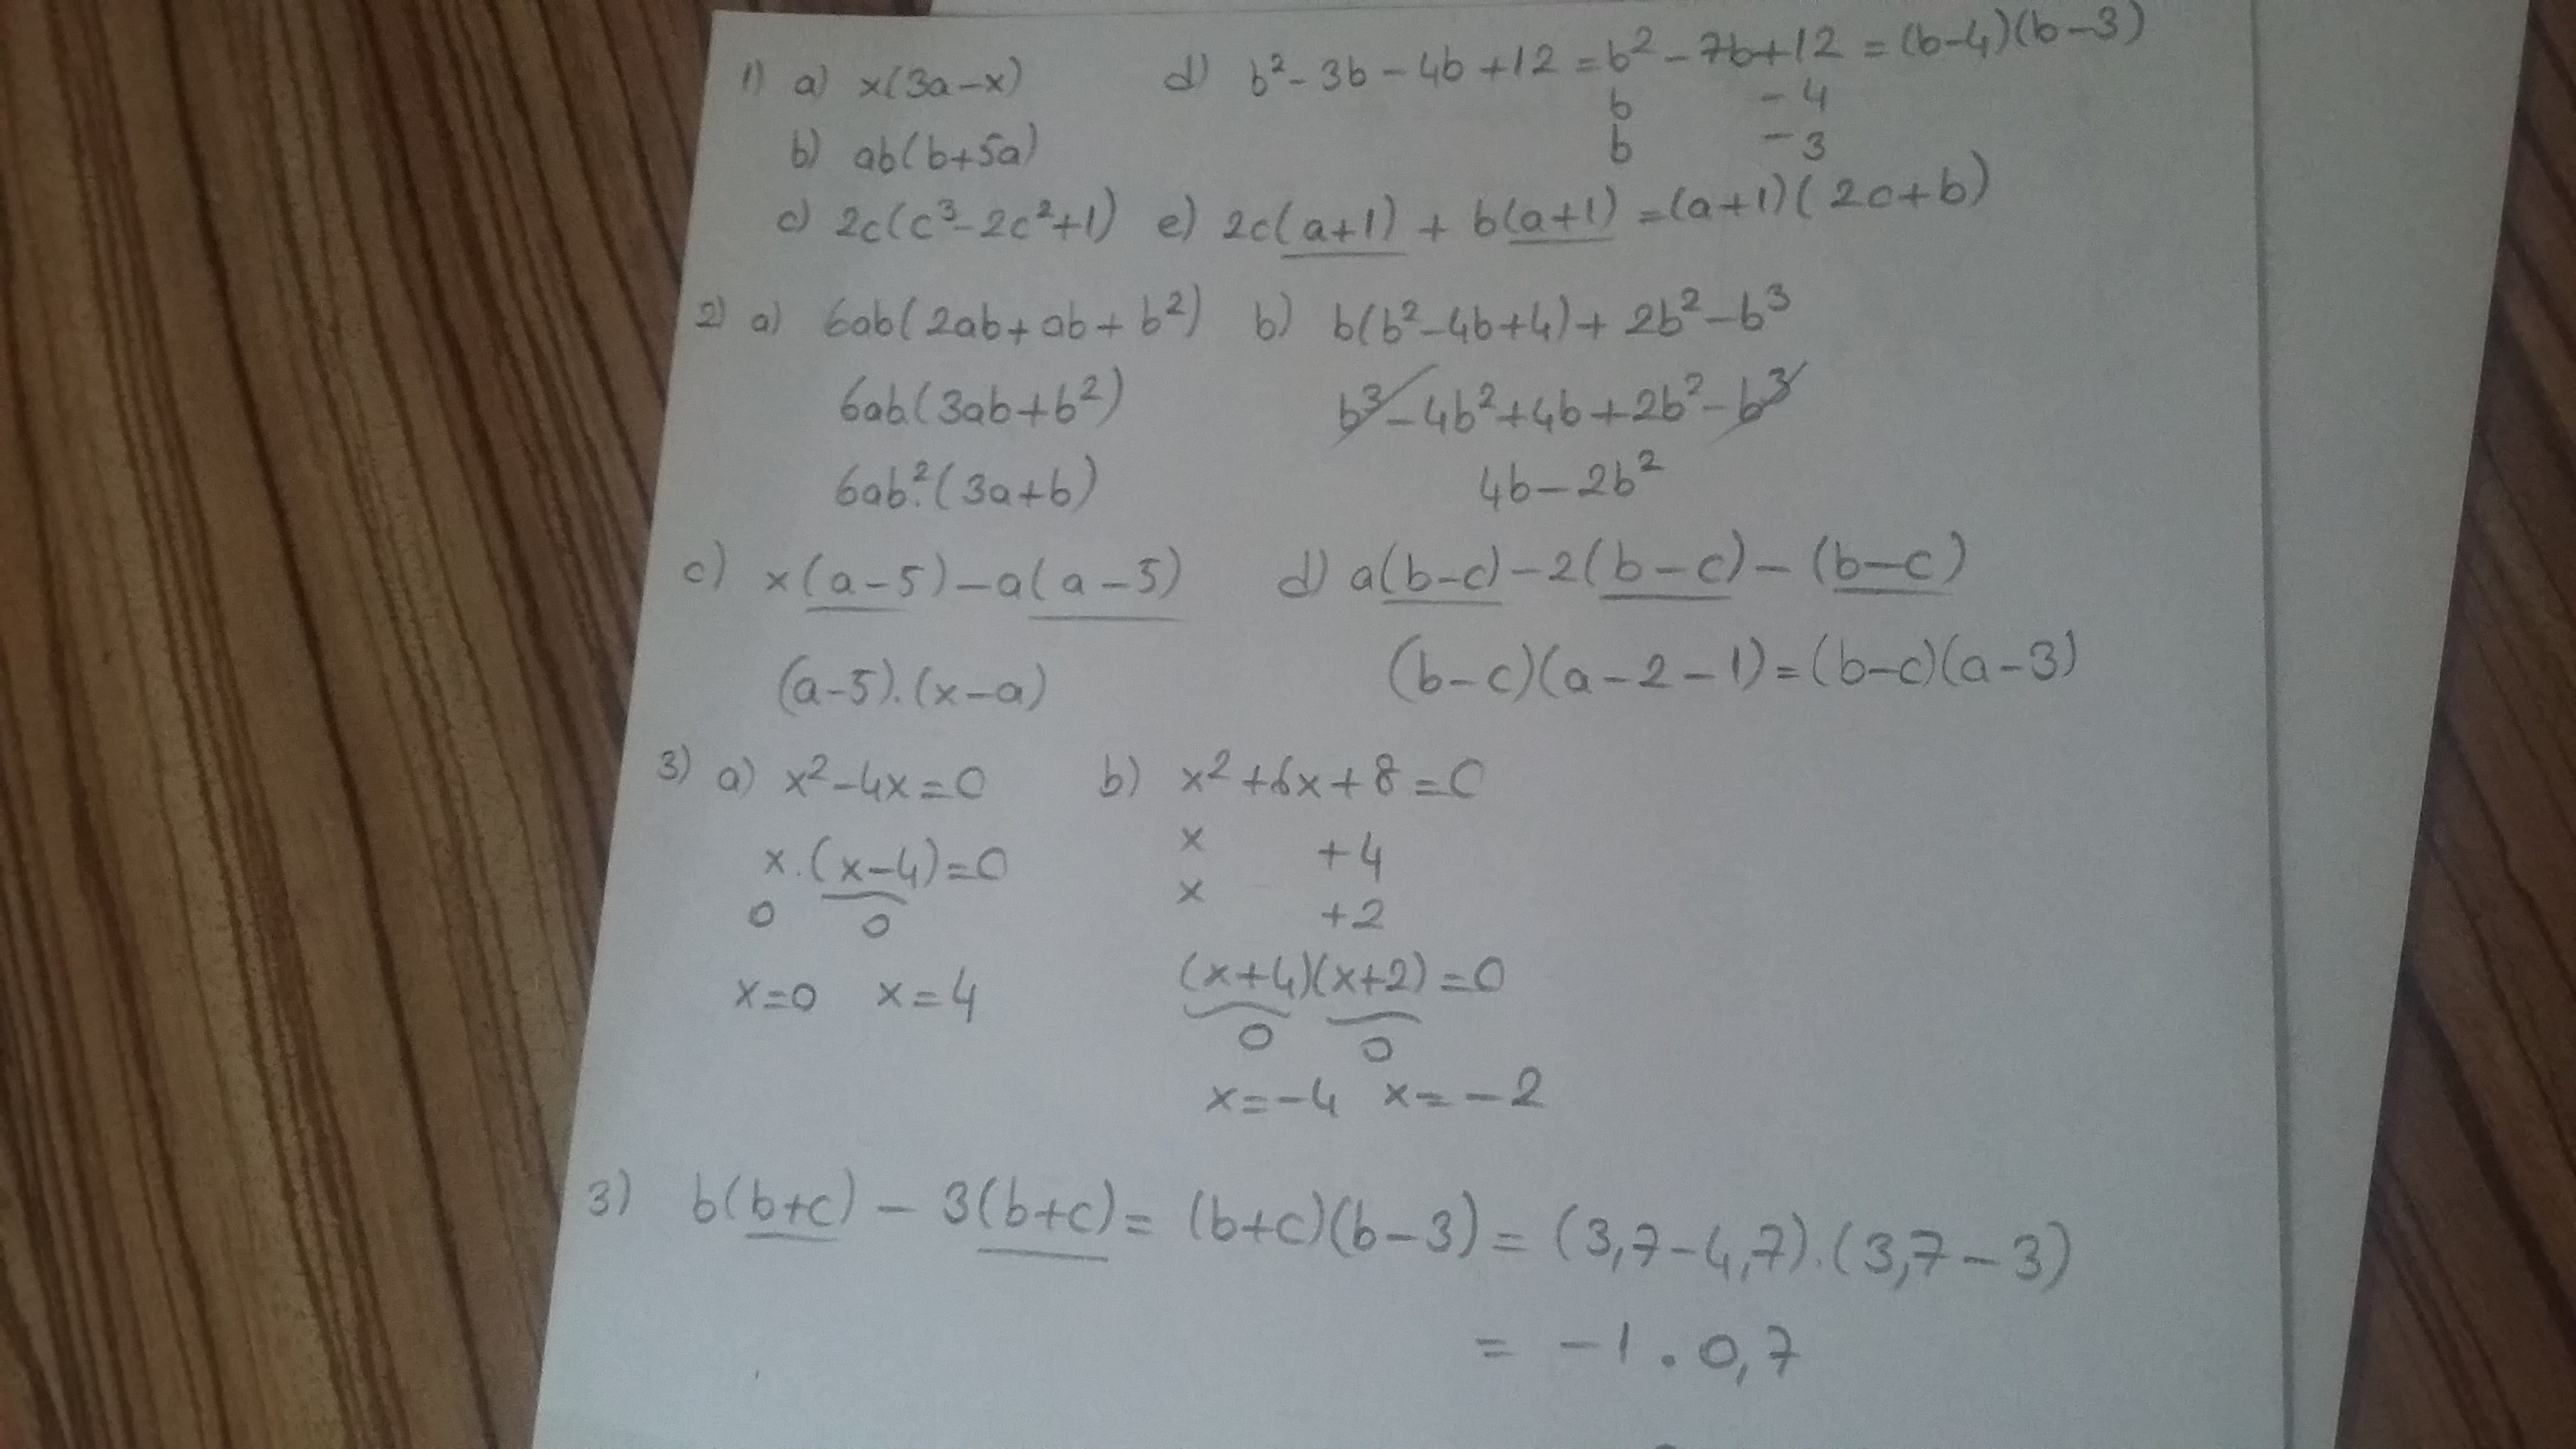 1) a) x(3a-x) d) b²-3b-4b+12=b²-7b+12=(b-4)(b-3)
b -4
b) ab(b+5a) b -3
c) 2c(c³-2c²+1) e) 2c(a+1)+b(a+1)=(a+1)(2c+b)
2) a) 6ab(2ab+ab+b²) b) b(b²-4b+4)+2b²-b³
6ab.(3ab+b²) b³-4b²+4b+2b²-b³
6ab².(3a+b) 4b-2b²
c) x(a-5)-a(a-5) d) a(b-c)-2(b-c)-(b-c)
(a-5).(x-a) (b-c)(a-2-1)=(b-c)(a-3)
3) a) x²-4x=0 b) x²+6x+8=0
x.(x-4)=0 x +4
0 0 x +2
x=0 x=4 (x+4)(x+2)=0
0 0
x=-4 x=-2
3) b(b+c)-3(b+c)=(b+c)(b-3)=(3,7-4,7).(3,7-3)
= -1.0,7